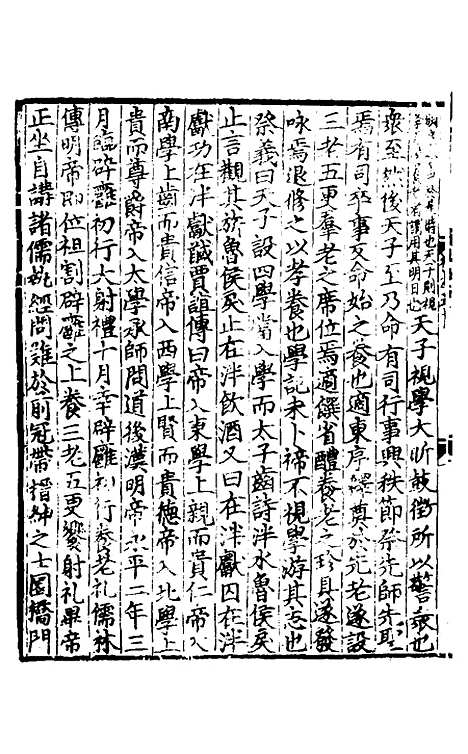 時也天子則視
用其明日也天子視學大昕鼓徵所以警衆也
衆至然後天子至乃命有司行事興秩節祭先師先聖
焉有司卒事反命始之養也適東序釋奠於先老遂設
三老五更羣老之席位焉適饌省醴養老之珍具遂發
咏焉退修之以孝養也學記未卜禘不視學游其志也
祭義曰天子設四學當入學而太子齒詩泮水魯侯戾
止言觀其旂魯侯戾止在泮飲酒又曰在泮獻囚在泮
獻功在泮獻馘賈誼傳曰帝入東學上親而貴仁帝入
南學上齒而貴信帝入西學上賢而貴德帝入北學上
貴而尊爵帝入大學承師問道後漢明帝永平二年三
月臨辟雍初行大射禮十月幸辟雍初行養老礼儒林
傳明帝即位袒割辟雍之上養三老五更饗射礼畢帝
正坐自講諸儒執經問難於前冠帶搢紳之士圜橋門